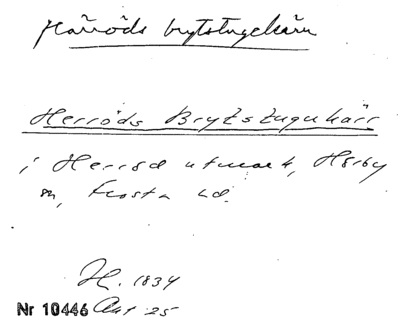 Härröds brytstugekärr
Herröds Brytstugukärr
i Herröd utmark, Hörby
sn, Frosta hd.
H. 1834
Nr 10446 Akt 25